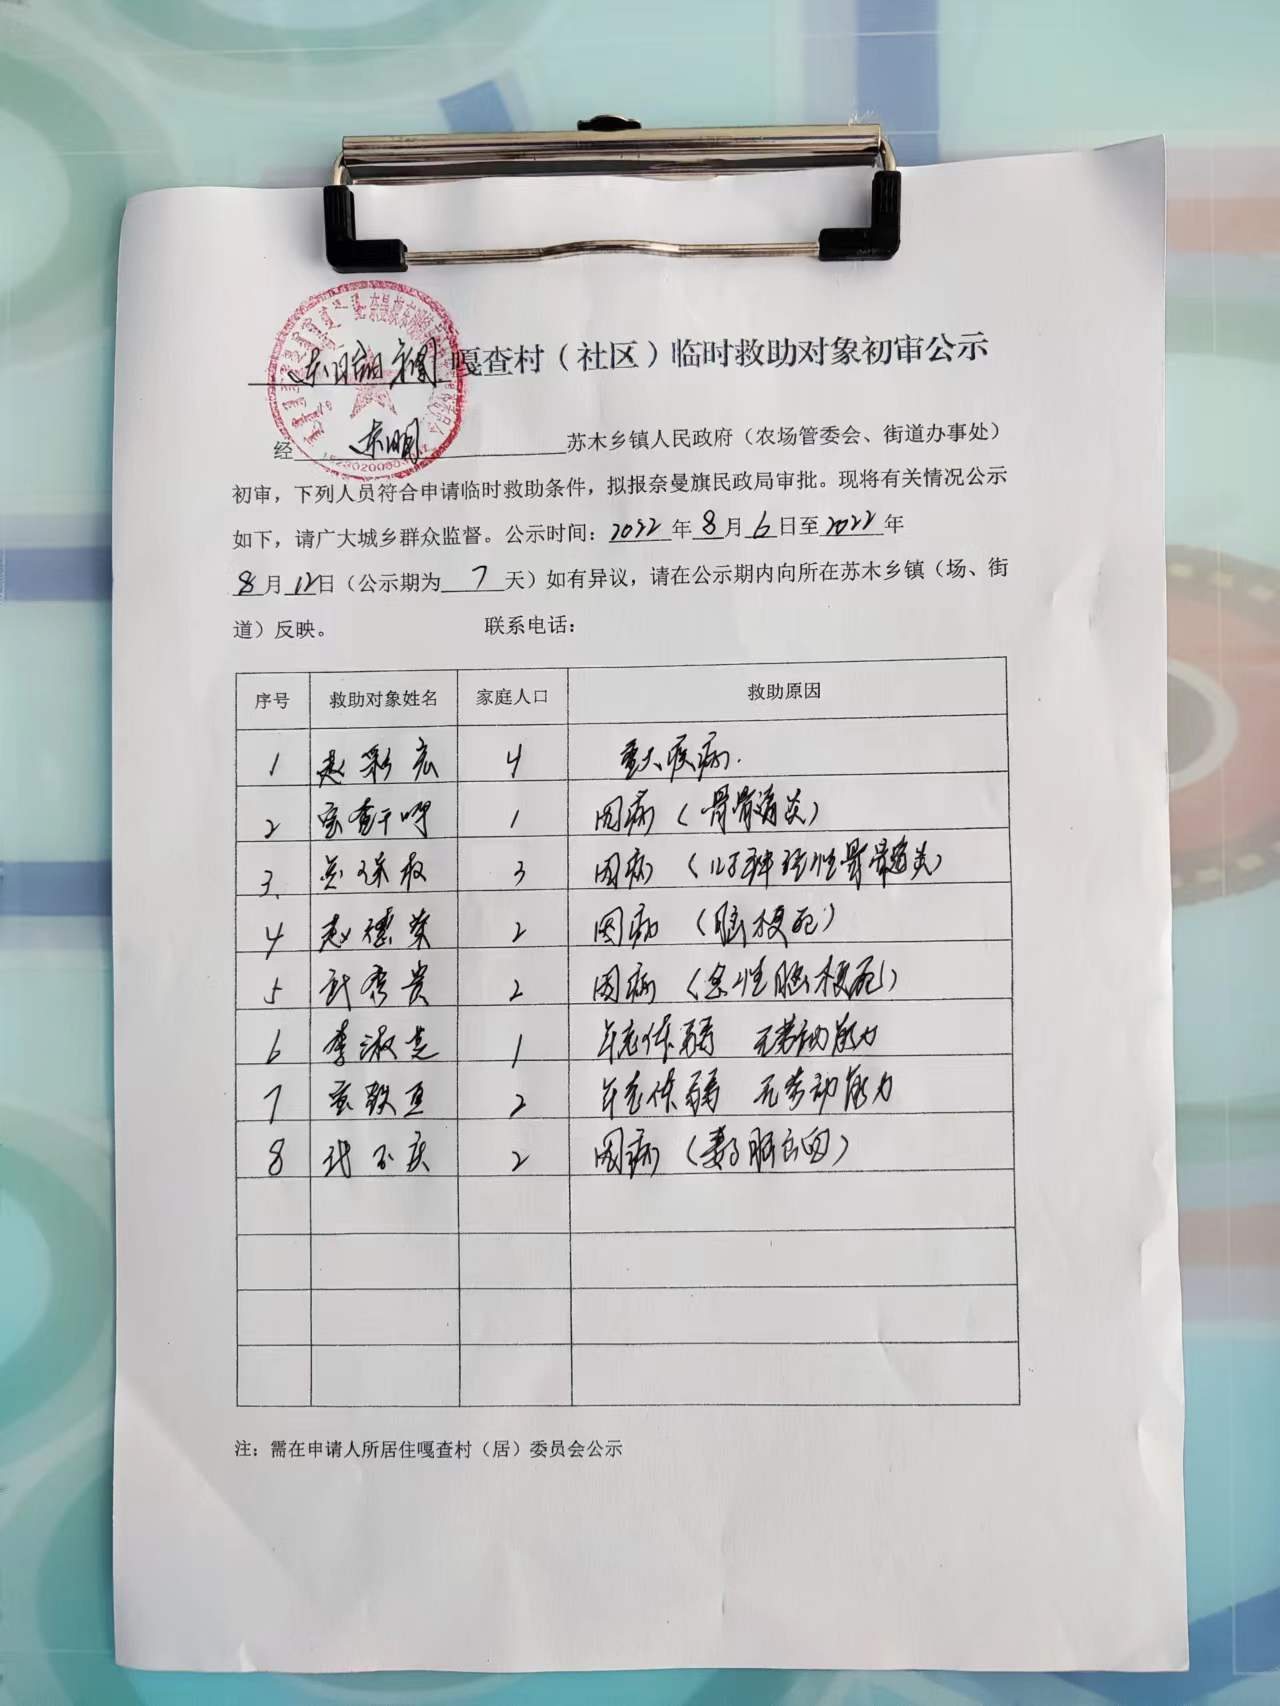 嘎查村（社区）临时救助对象初审公示
经 东明 苏木乡镇人民政府（农场管委会、街道办事处）
初审，下列人员符合申请临时救助条件，拟报奈曼旗民政局审批。现将有关情况公示
如下，请广大城乡群众监督。公示时间：2022年8月6日至2022年
8月12日（公示期为7天）如有异议，请在公示期内向所在苏木乡镇（场、街
道）反映。 联系电话：
序号 救助对象姓名 家庭人口 救助原因
1 赵彩宏 4 重大疾病.
2 1 因病（骨骨 炎）
3. 3 因病（
4 赵德荣 2 因病（脑梗死）
5 武秀贵 2 因病（急性脑梗死）
6 李淑芝 1 年老体弱 无劳动能力
7 2 年老体弱 无劳动能力
8 2 因病（妻子脑出血）
注：需在申请人所居住嘎查村（居）委员会公示